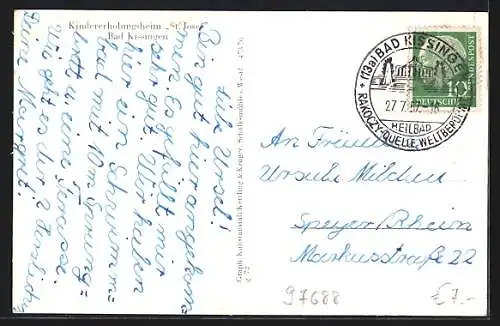 Kindererholungsheim „St. Josef“
Bad Kissingen
Liebe Ursel!
Bin gut hier angekom
men. Es gefällt mir
sehr gut. Wir haben
hier ein Schwimm=
bad mit 10 m Sprung=
brett u. eine Terasse.
Wie geht es dir?
Deine Margret.
Graph. Kunstanstalt Kettling & Krüger, Schalksmühle, Westf.
(13a) BAD KISSINGEN
27.7.
HEILBAD
RAKOCZY-QUELLE WELTBERÜHMT
DEUTSCHE BUNDESPOST
10
An Fräulein
Ursula Milchen
Speyer/Rhein
Markusstraße 22
97688
€ 7.-